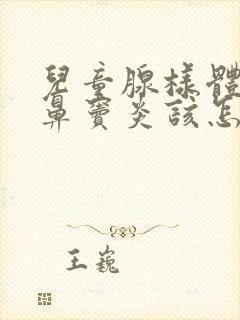 兒童腺樣體
鼻竇炎該怎
王巍